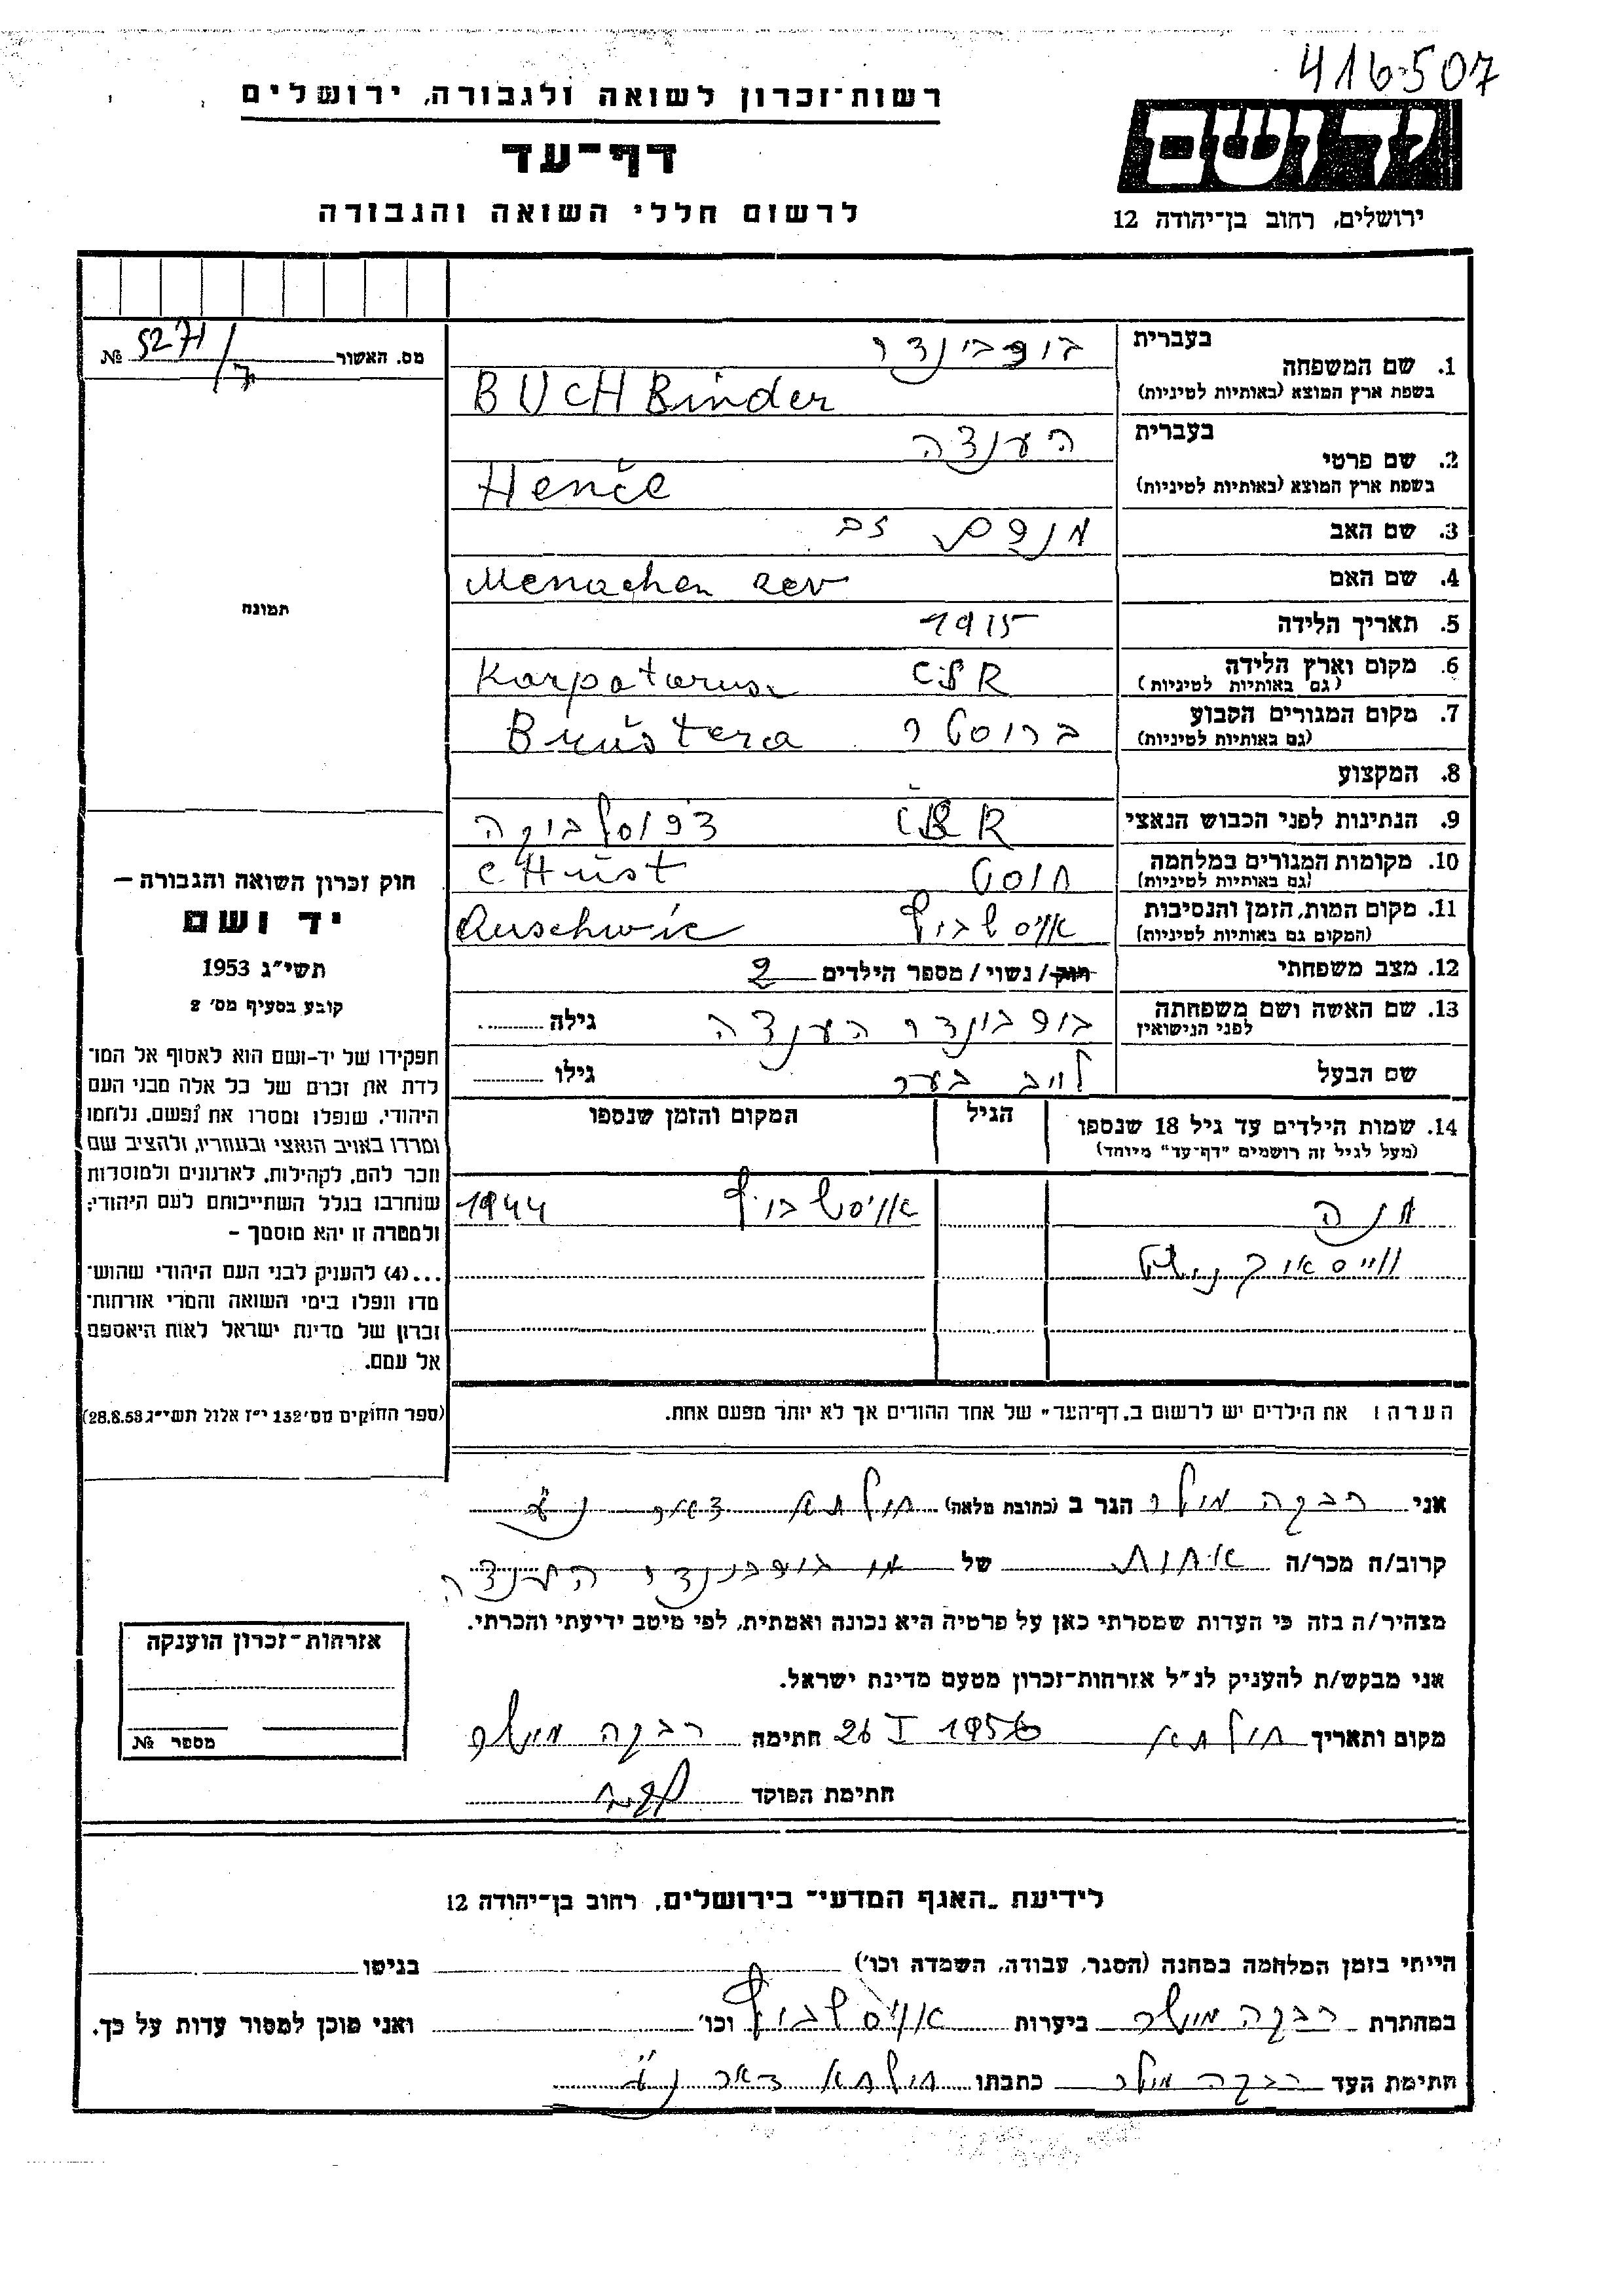 416507
רשות־זכרון לשואה ולגבורה, ירושלים
דף־עד
לרשום חללי השואה והגבורה
יד ושם
ירושלים, רחוב בן־יהודה 12
מס. האשור 5271/7 №
תמונה
חוק זכרון השואה והגבורה —
יד ושם
תשי״ג 1953
קובע בסעיף מס׳ 2
תפקידו של יד-ושם הוא לאסוף אל המו־
לדת את זכרם של כל אלה מבני העם
היהודי, שנפלו ומסרו את נפשם, נלחמו
ומרדו באויב הנאצי ובעוזריו, ולהציב שם
וזכר להם, לקהילות, לארגונים ולמוסדות
שנחרבו בגלל השתייכותם לעם היהודי;
ולמטרה זו יהא מוסמך –
...(4) להעניק לבני העם היהודי שהוש־
מדו ונפלו בימי השואה והמרי אזרחות־
זכרון של מדינת ישראל לאות היאספם
אל עמם.
(ספר החוקים מס׳ 132 י״ז אלול תשי״ג 28.8.53)
בעברית
בוכבינדר
1. שם המשפחה
בשפת ארץ המוצא (באותיות לטיניות)
BUCHBinder
בעברית
הענצה
2. שם פרטי
בשפת ארץ המוצא (באותיות לטיניות)
Henče
3. שם האב
מנחם זב
4. שם האם
Menachem zev
5. תאריך הלידה
1915
6. מקום וארץ הלידה
(גם באותיות לטיניות)
Karpatarus ČSR
7. מקום המגורים הקבוע
(גם באותיות לטיניות)
ברוסטר Brüstera
8. המקצוע
9. הנתינות לפני הכבוש הנאצי
ČSR
10. מקומות המגורים במלחמה
(גם באותיות לטיניות)
חוסט CHust
11. מקום המות, הזמן והנסיבות
(המקום גם באותיות לטיניות)
אויסשביץ Auschwic
12. מצב משפחתי
רווק/נשוי/מספר הילדים 2
13. שם האשה ושם משפחתה
לפני הנישואין
בוכבינדר הענצה גילה
שם הבעל
לייב בער גילו
14. שמות הילדים עד גיל 18 שנספו
(מעל לגיל זה רושמים "דף־עד" מיוחד)
הגיל
המקום והזמן שנספו
חנה
אויסשביץ 1944
הערה: את הילדים יש לרשום ב„דף־העד" של אחד ההורים אך לא יותר מפעם אחת.
אני רבקה מולר הגר ב (כתובת מלאה) חולתא דאר נע
קרוב/ה מכר/ה אחות של בוכבינדר הענצה
מצהיר/ה בזה כי העדות שמסרתי כאן על פרטיה היא נכונה ואמתית, לפי מיטב ידיעתי והכרתי.
אני מבקש/ת להעניק לנ״ל אזרחות־זכרון מטעם מדינת ישראל.
מקום ותאריך חולתא 26 I 1956 חתימה רבקה מולר
חתימת הפוקד
אזרחות־זכרון הוענקה
מספר №
לידיעת „האגף המדעי" בירושלים, רחוב בן־יהודה 12
הייתי בזמן המלחמה במחנה (הסגר, עבודה, השמדה וכו׳) בגיטו
במחתרת רבקה מולר ביערות אויסשביץ וכו׳ ואני מוכן למסור עדות על כך.
חתימת העד רבקה מולר כתבתו חולתא דאר נע